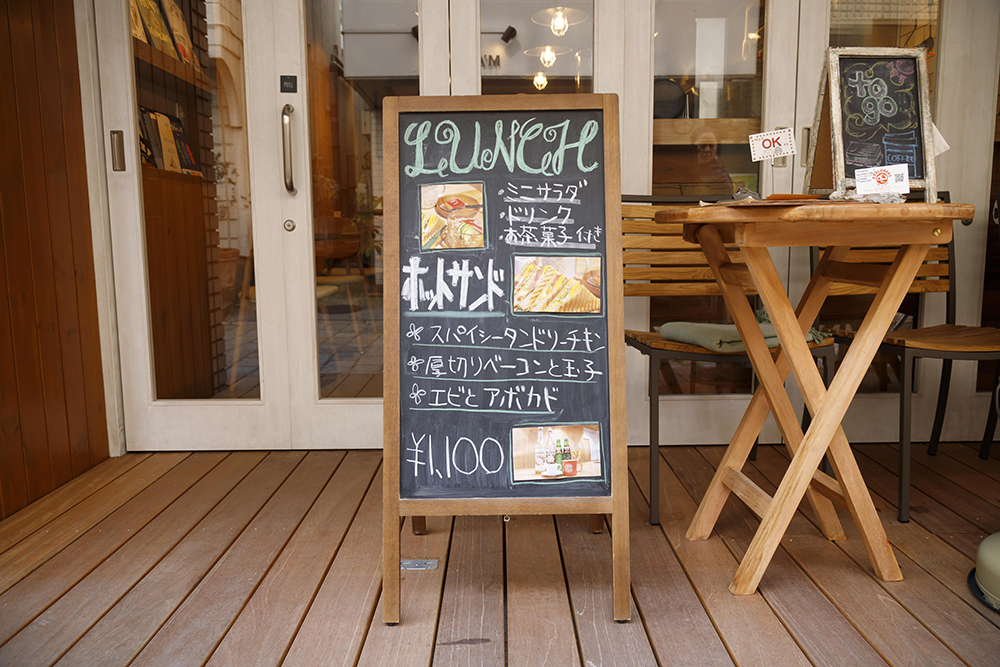 LUNCH
・ミニサラダ
・ドリンク
・お茶菓子 付き
ホットサンド
スパイシータンドリーチキン
厚切りベーコンと玉子
エビとアボカド
¥1,100
OK
COFFEE
PULL